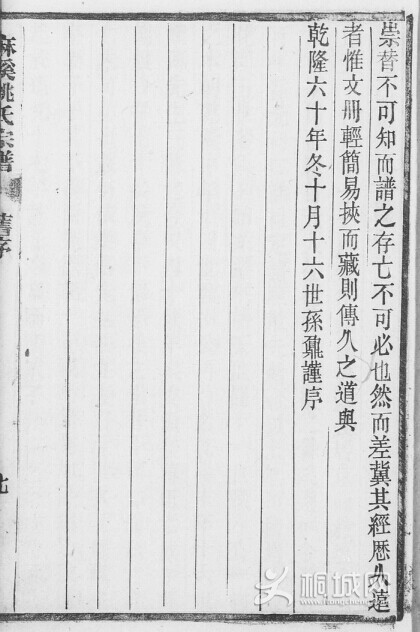 崇替不可知而譜之存亡不可必也然而差冀其經歷久遠
者惟文冊輕簡易挾而藏則傳久之道與
乾隆六十年冬十月十六世孫鼐謹序
麻溪姚氏宗譜 舊序 七
桐城